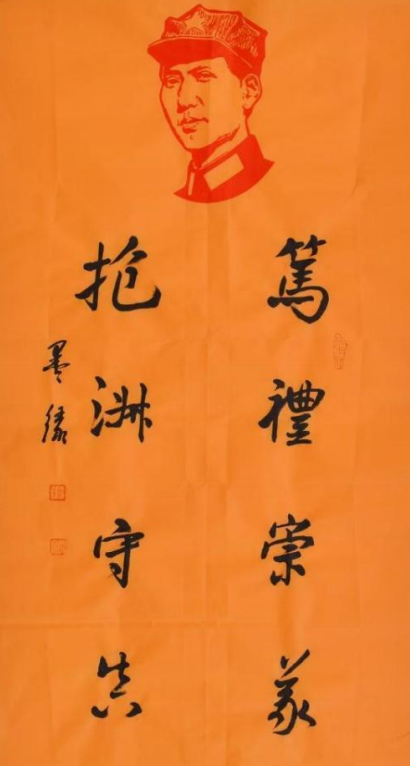 篤禮崇義
抱淵守真
墨